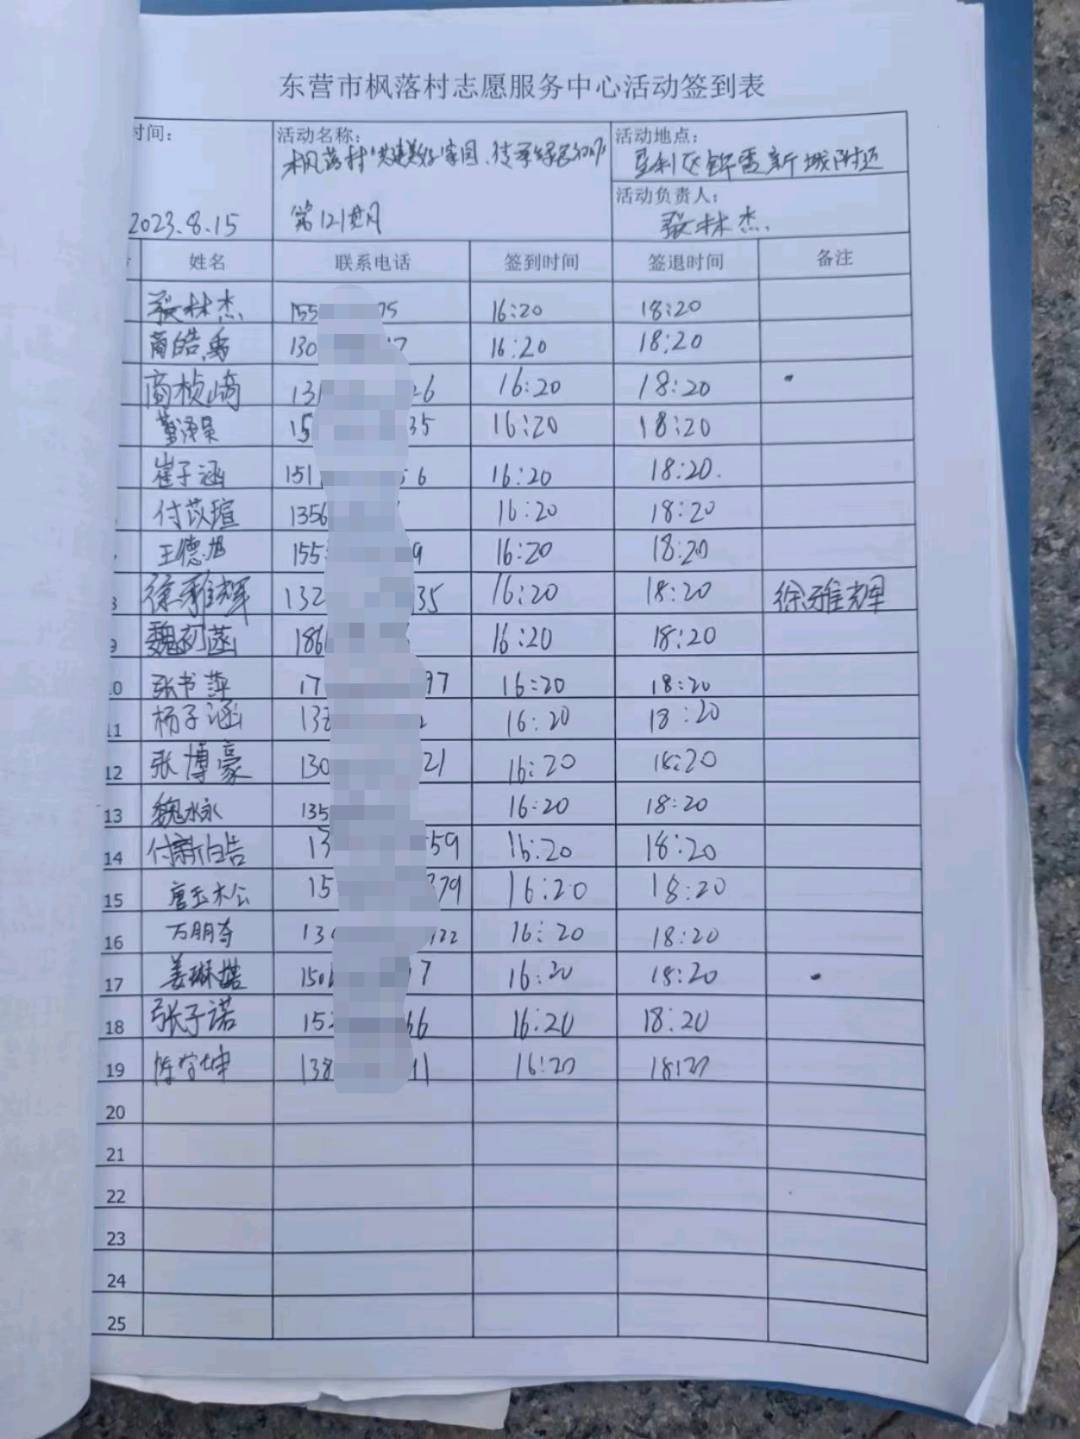 东营市枫落村志愿服务中心活动签到表
时间: 活动名称: 活动地点:
枫落村"共建美好家园、传承
亚利 新城附近
活动负责人:
2023.8.15 第121期 张林杰
姓名 联系电话 签到时间 签退时间 备注
张林杰 155 75 16:20 18:20
商皓禹 130 7 16:20 18:20
商桢崎 13 26 16:20 18:20
董泽昊 15 35 16:20 18:20
崔子涵 151 6 16:20 18:20.
付苡瑄 1356 16:20 18:20
王德旭 155 9 16:20 18:20
徐雅辉 132 35 16:20 18:20 徐雅辉
9 魏珂菡 186 16:20 18:20
张书萍 17 97 16:20 18:20
11 杨子涵 13 2 16:20 18:20
12 张博豪 130 21 16:20 18:20
13 魏 135 16:20 18:20
14 付新皓 13 59 16:20 18:20
15 唐玉松 15 379 16:20 18:20
16 万朋奇 13 122 16:20 18:20
17 姜琳 150 7 16:20 18:20
18 张子诺 15 66 16:20 18:20
19 138 11 16:20 18:20
20
21
22
23
24
25